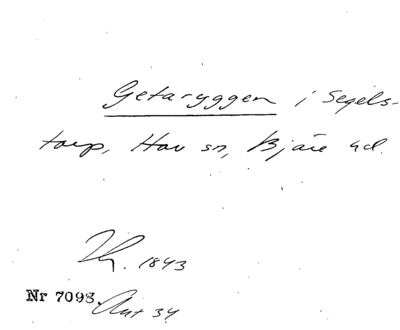 Getaryggen i Segels-
torp, Hov sn, Bjäre hd.
Th. 1843
Nr 7098. Ant 34